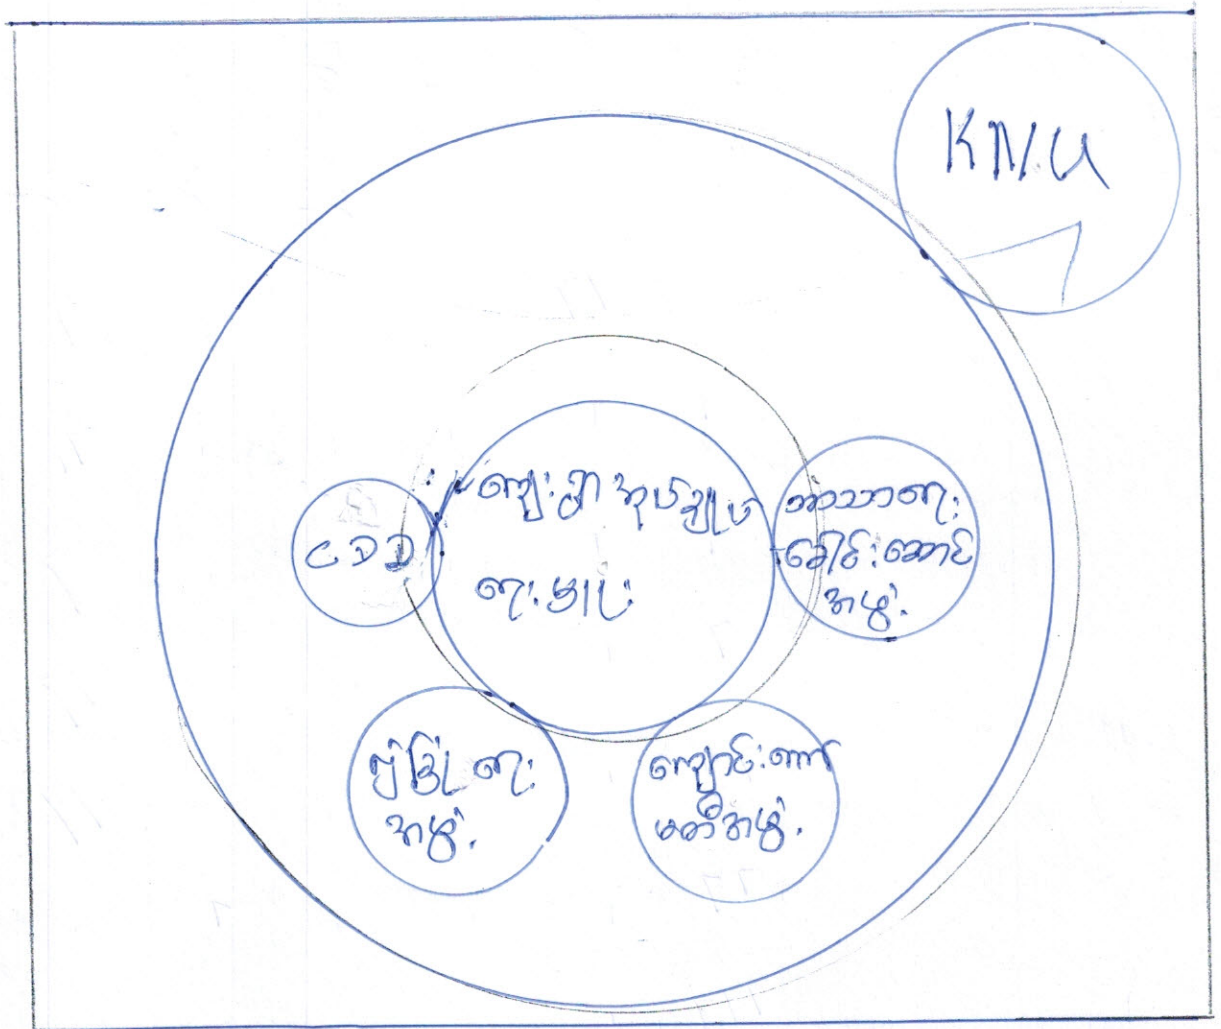 KNU
ကျေးရွာ အုပ်ချုပ်
ရေးမှူး
CDD
ဘာသာရေး
ခေါင်းဆောင်
အဖွဲ့
ဖွံ့ဖြိုးရေး
အဖွဲ့
ကျောင်းကော်
မတီအဖွဲ့